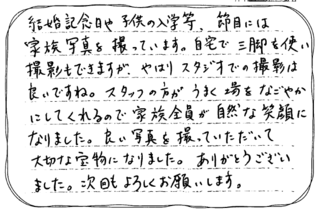 結婚記念日や子供の入学等、節目には
家族写真を撮っています。自宅で三脚を使い
撮影もできますが、やはりスタジオでの撮影は
良いですね。スタッフの方がうまく場をなごやか
にしてくれるので家族全員が自然な笑顔に
なりました。良い写真を撮っていただいて
大切な宝物になりました。ありがとうござい
ました。次回もよろしくお願いします。